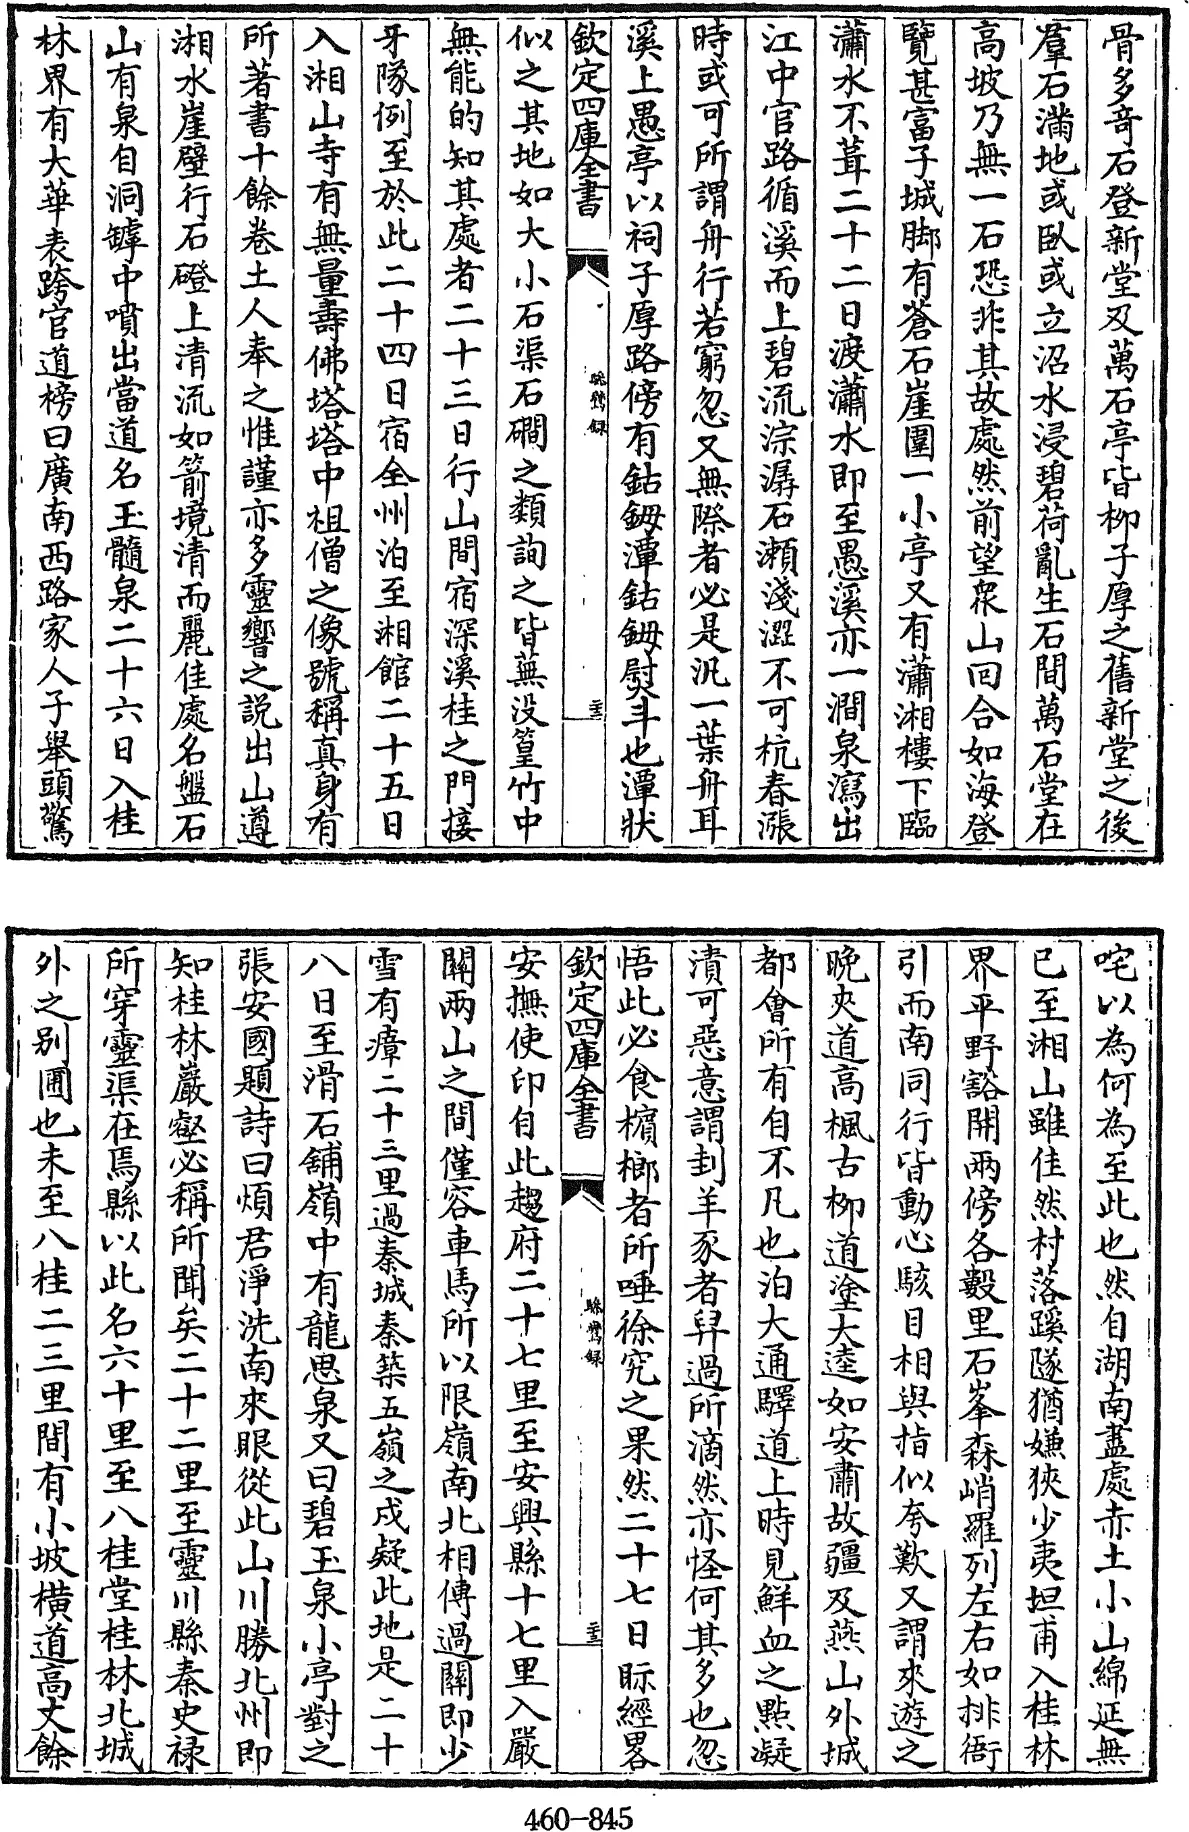 骨多奇石登新堂及萬石亭皆柳子厚之舊新堂之後
羣石滿地或臥或立沼水浸碧荷亂生石間萬石堂在
高坡乃無一石恐非其故處然前望衆山回合如海登
覽甚富子城脚有蒼石崖圍一小亭又有瀟湘樓下臨
瀟水不葺二十二日渡瀟水即至愚溪亦一澗泉瀉出
江中官路循溪而上碧流淙潺石瀬淺澀不可杭春漲
時或可所謂舟行若窮忽又無際者必是汎一葉舟耳
溪上愚亭以祠子厚路傍有鈷鉧潭鈷鉧熨斗也潭狀
欽定四庫全書
驂鸞録
二十二
似之其地如大小石渠石磵之類詢之皆蕪没篁竹中
無能的知其處者二十三日行山間宿深溪桂之門接
牙隊例至於此二十四日宿全州泊至湘館二十五日
入湘山寺有無量壽佛塔塔中祖僧之像號稱真身有
所著書十餘卷土人奉之惟謹亦多靈響之說出山遵
湘水崖壁行石磴上清流如箭境清而麗佳處名盤石
山有泉自洞罅中噴出當道名玉髓泉二十六日入桂
林界有大華表跨官道榜曰廣南西路家人子舉頭驚
咤以為何為至此也然自湖南盡處赤土小山綿延無
已至湘山雖佳然村落蹊隧猶嫌狹少夷坦甫入桂林
界平野豁開兩傍各數里石峯森峭羅列左右如排衙
引而南同行皆動心駭目相與指似夸歎又謂來遊之
晚夾道高楓古柳道塗大逵如安肅故疆及燕山外城
都會所有自不凡也泊大通驛道上時見鮮血之點凝
漬可惡意謂刲羊豕者舁過所滴然亦怪何其多也忽
悟此必食檳榔者所唾徐究之果然二十七日眎經畧
欽定四庫全書
驂鸞録
二十三
安撫使印自此趨府二十七里至安興縣十七里入嚴
關兩山之間僅容車馬所以限嶺南北相傳過關即少
雪有瘴二十三里過秦城秦築五嶺之戍疑此地是二十
八日至滑石舖嶺中有龍思泉又曰碧玉泉小亭對之
張安國題詩曰煩君淨洗南來眼從此山川勝北州即
知桂林巖壑必稱所聞矣二十二里至靈川縣秦史禄
所穿靈渠在焉縣以此名六十里至八桂堂桂林北城
外之别圃也未至八桂二三里間有小坡横道高丈餘
460-845